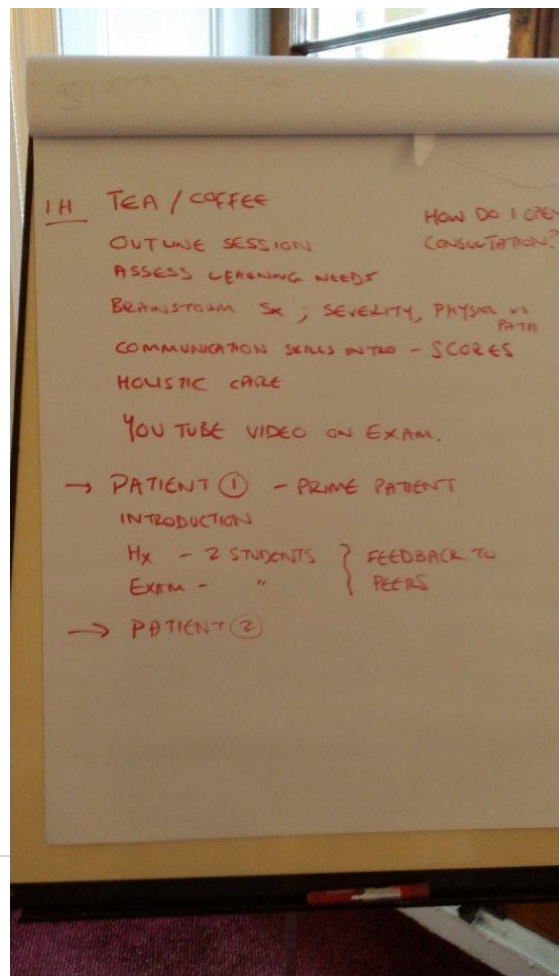 1H TEA / COFFEE
HOW DO I OPEN
CONSULTATION?
OUTLINE SESSION
ASSESS LEARNING NEEDS
BRAINSTORM Sx ; SEVERITY, PHYSIOL vs
PATH
COMMUNICATION SKILLS INTRO - SCORES
HOLISTIC CARE
YOU TUBE VIDEO ON EXAM.
→ PATIENT ① - PRIME PATIENT
INTRODUCTION
Hx - 2 STUDENTS } FEEDBACK TO
EXAM - " } PEERS
→ PATIENT ②